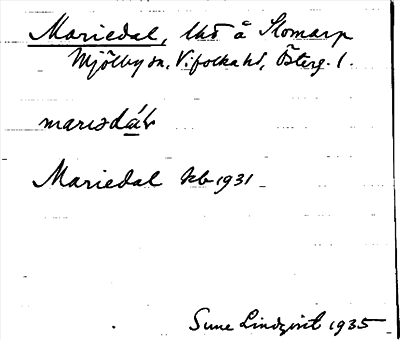 Mariedal, lhd å Slomarp
Mjölby sn, Vifolka hd, Österg. l.
marıədáɫ
Mariedal kb 1931
Sune Lindqvist 1935